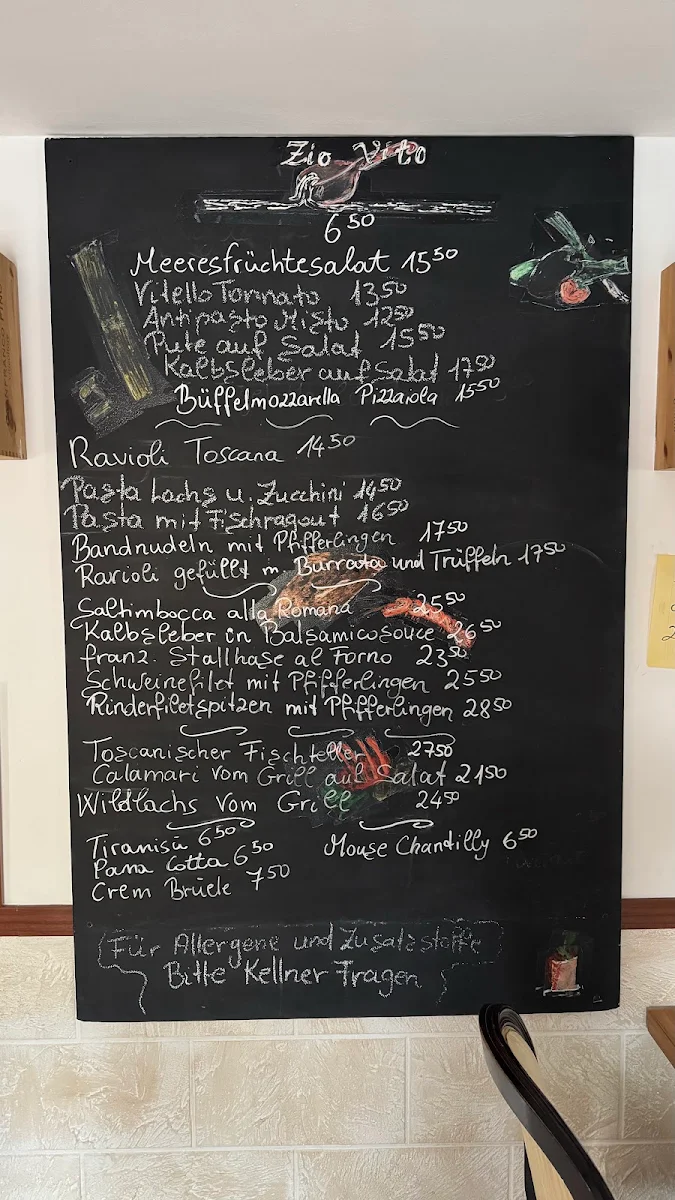 Zio Vito
6 50
Meeresfrüchtesalat 15 50
Vitello Tonnato 13 50
Antipasto Misto 12 50
Pute auf Salat 15 50
Kalbsleber auf Salat 17 50
Büffelmozzarella Pizzaiola 15 50
Ravioli Toscana 14 50
Pasta Lachs u. Zucchini 14 50
Pasta mit Fischragout 16 50
Bandnudeln mit Pfifferlingen 17 50
Ravioli gefüllt m. Burrata und Trüffeln 17 50
Saltimbocca alla Romana 25 50
Kalbsleber in Balsamicosouce 26 50
franz. Stallhase al Forno 23 50
Schweinefilet mit Pfifferlingen 25 50
Rinderfiletspitzen mit Pfifferlingen 28 50
Toscanischer Fischteller 27 50
Calamari vom Grill auf Salat 21 50
Wildlachs vom Grill 24 50
Tiramisu 6 50
Pana Cotta 6 50
Crem Brúele 7 50
Mouse Chantilly 6 50
Für Allergene und Zusatzstoffe
Bitte Kellner Fragen